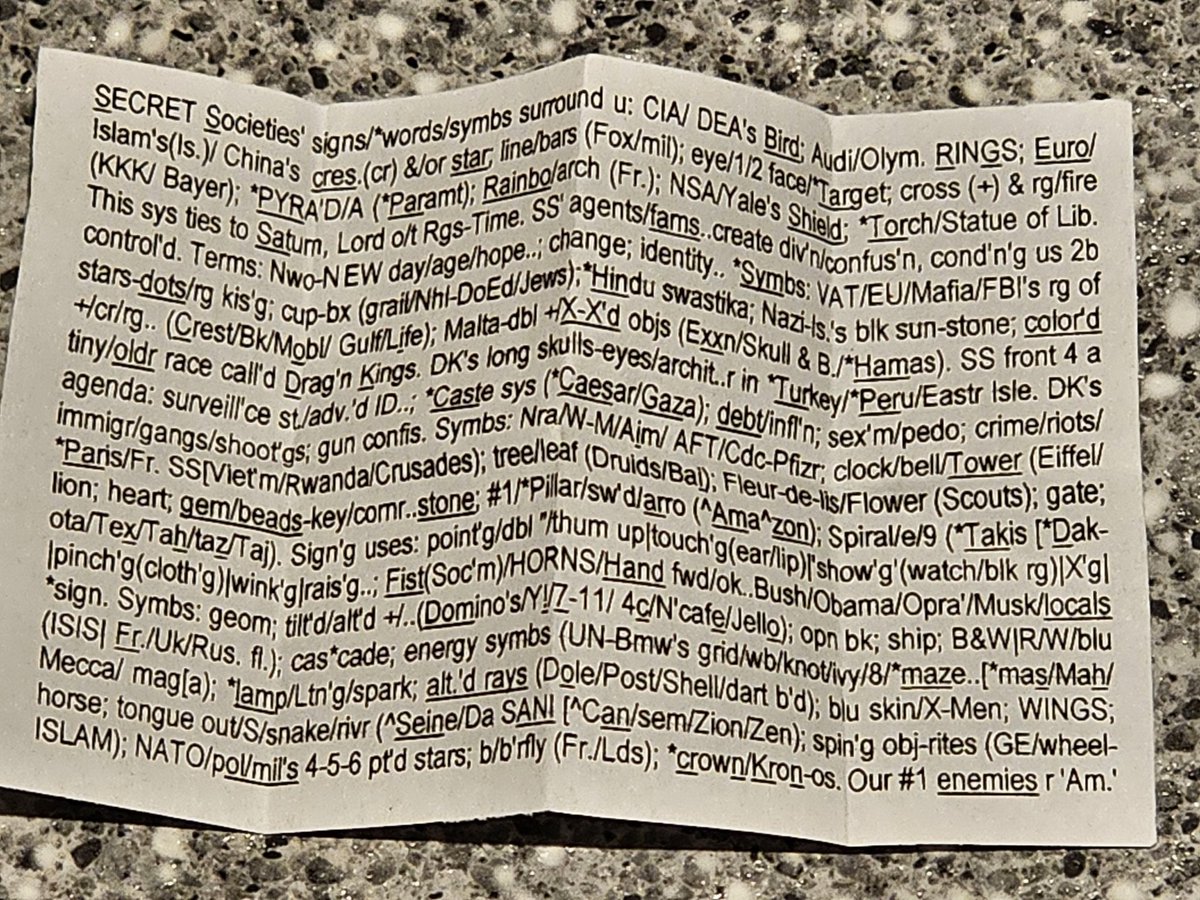 SECRET Societies' signs/*words/symbs surround u: CIA/ DEA's Bird; Audi/Olym. RINGS; Euro/
Islam's(Is.)/ China's cres.(cr) &/or star; line/bars (Fox/mil); eye/1/2 face/*Target; cross (+) & rg/fire
(KKK/ Bayer); *PYRA'D/A (*Paramt); Rainbo/arch (Fr.); NSA/Yale's Shield; *Torch/Statue of Lib.
This sys ties to Saturn, Lord o/t Rgs-Time. SS' agents/fams..create div'n/confus'n, cond'n'g us 2b
control'd. Terms: Nwo-NEW day/age/hope..; change; identity.. *Symbs: VAT/EU/Mafia/FBI's rg of
stars-dots/rg kis'g; cup-bx (grail/Nhl-DoEd/Jews);*Hindu swastika; Nazi-Is.'s blk sun-stone; color'd
+/cr/rg.. (Crest/Bk/Mobl/ Gulf/Life); Malta-dbl +/X-X'd objs (Exxn/Skull & B./*Hamas). SS front 4 a
tiny/oldr race call'd Drag'n Kings. DK's long skulls-eyes/archit..r in *Turkey/*Peru/Eastr Isle. DK's
agenda: surveill'ce st./adv.'d ID..; *Caste sys (*Caesar/Gaza); debt/infl'n; sex'm/pedo; crime/riots/
immigr/gangs/shoot'gs; gun confis. Symbs: Nra/W-M/Aim/ AFT/Cdc-Pfizr; clock/bell/Tower (Eiffel/
*Paris/Fr. SS[Viet'm/Rwanda/Crusades); tree/leaf (Druids/Bal); Fleur-de-lis/Flower (Scouts); gate;
lion; heart; gem/beads-key/cornr..stone; #1/*Pillar/sw'd/arro (^Ama^zon); Spiral/e/9 (*Takis [*Dak-
ota/Tex/Tah/taz/Taj). Sign'g uses: point'g/dbl "/thum up|touch'g(ear/lip)|'show'g'(watch/blk rg)|X'g|
|pinch'g(cloth'g)|wink'g|rais'g..; Fist(Soc'm)/HORNS/Hand fwd/ok..Bush/Obama/Opra'/Musk/locals
*sign. Symbs: geom; tilt'd/alt'd +/..(Domino's/Y!/7-11/ 4c/N'cafe/Jello); opn bk; ship; B&W|R/W/blu
(ISIS| Fr./Uk/Rus. fl.); cas*cade; energy symbs (UN-Bmw's grid/wb/knot/ivy/8/*maze..[*mas/Mah/
Mecca/ mag[a); *lamp/Ltn'g/spark; alt.'d rays (Dole/Post/Shell/dart b'd); blu skin/X-Men; WINGS;
horse; tongue out/S/snake/rivr (^Seine/Da SANI [^Can/sem/Zion/Zen); spin'g obj-rites (GE/wheel-
ISLAM); NATO/pol/mil's 4-5-6 pt'd stars; b/b'rfly (Fr./Lds); *crown/Kron-os. Our #1 enemies r 'Am.'